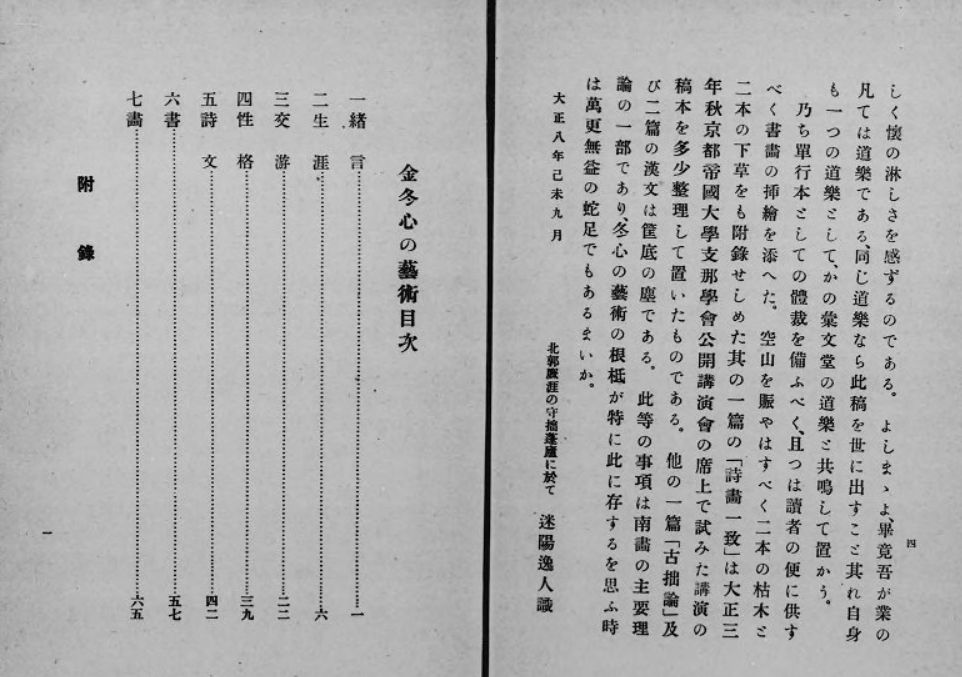 四
しく懷の淋しさを感ずるのである。よしまゝよ、畢竟吾が業の
凡ては道樂である、同じ道樂なら此稿を世に出すこと其れ自身
も一つの道樂として、かの彙文堂の道樂と共鳴して置かう。
乃ち單行本としての體裁を備ふべく、且つは讀者の便に供す
べく書畫の挿繪を添へた。空山を賑やはすべく二本の枯木と
二本の下草をも附錄せしめた其の一篇の「詩畫一致」は大正三
年秋京都帝國大學支那學會公開講演會の席上で試みた講演の
稿本を多少整理して置いたものである。他の一篇「古拙論」及
び二篇の漢文は筐底の塵である。此等の事項は南畫の主要理
論の一部であり、冬心の藝術の根柢が特に此に存するを思ふ時
は萬更無益の蛇足でもあるまいか。
大正八年己未九月
北郭鷹涯の守拙蓬廬に於て 迷陽逸人識
金冬心の藝術目次
一緖言……一
二生涯……六
三交游……二二
四性格……三九
五詩文……四二
六書……五七
七畫……六五
附錄
一